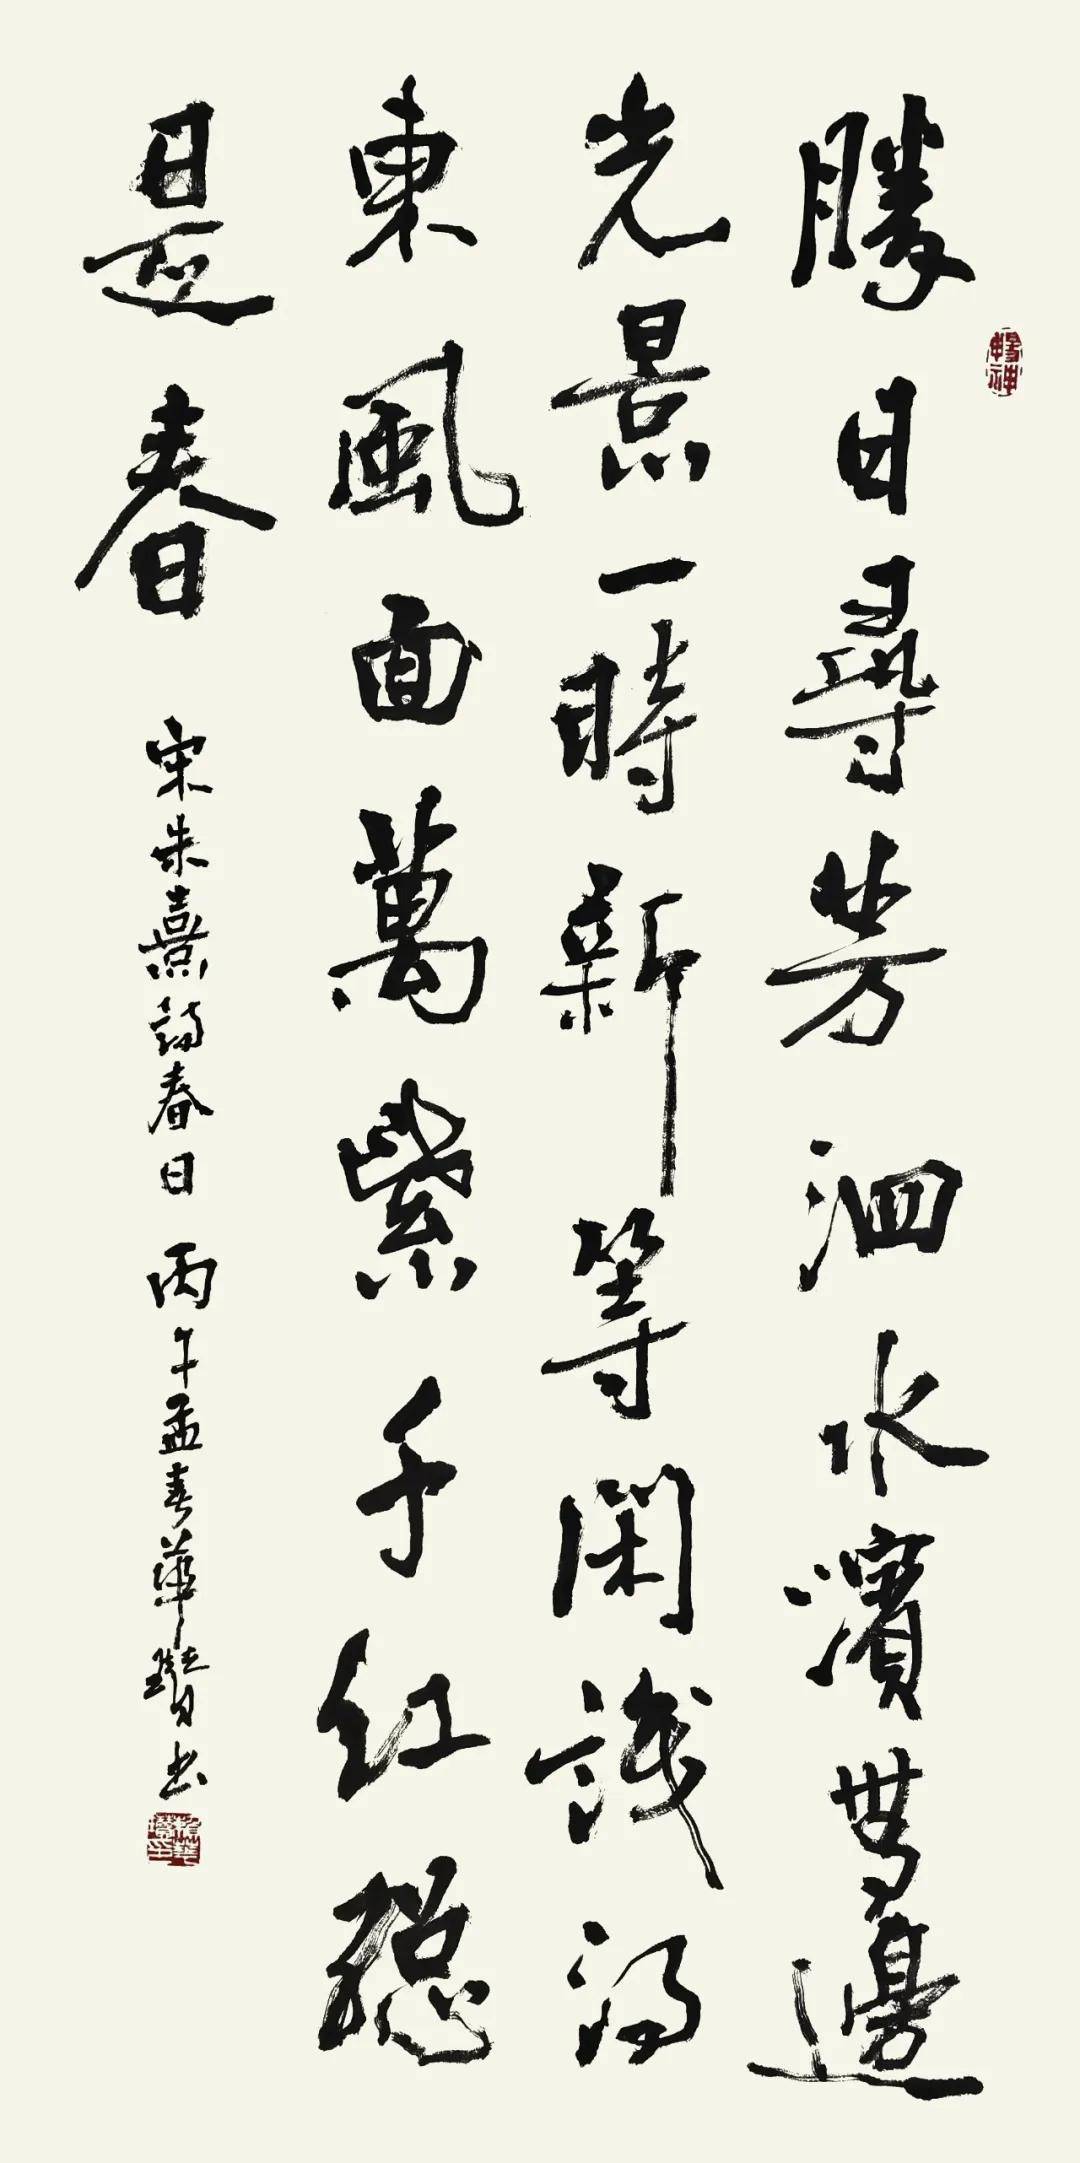 勝日尋芳泗水濱無邊
光景一時新等閑識得
東風面萬紫千紅總
是春
宋朱熹詩春日 丙午孟春華瓚书